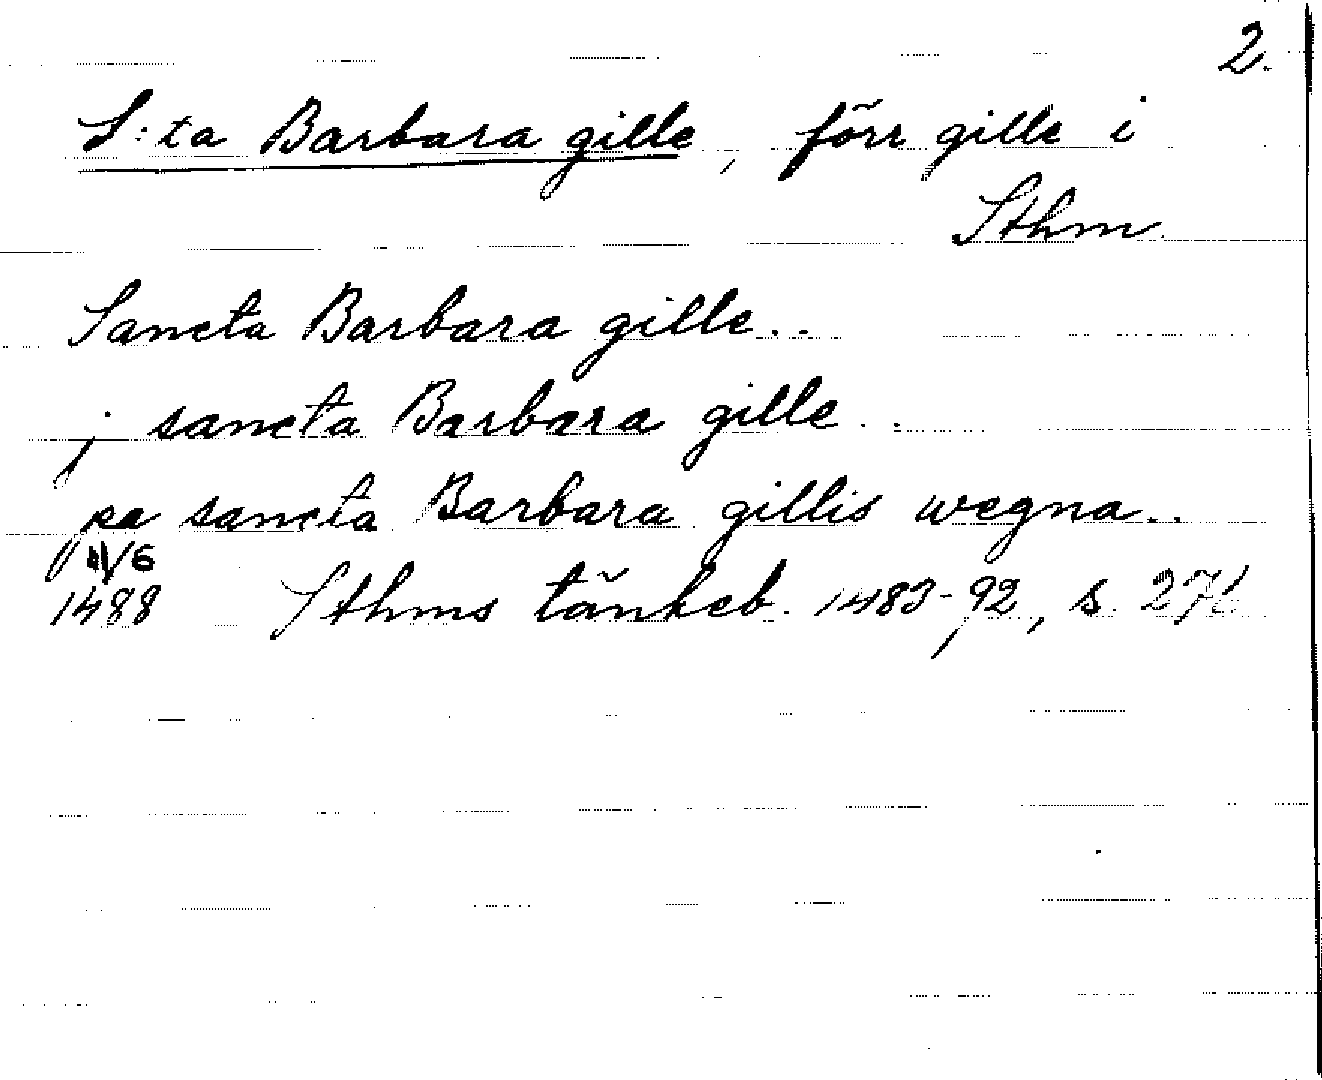 2.
S:ta Barbara gille, förr gille i
Sthm.
Sancta Barbara gille..
j sancta Barbara gille..
pa sancta Barbara gillis wegna..
11/6
1488 Sthms tänkeb. 1483-92, s.